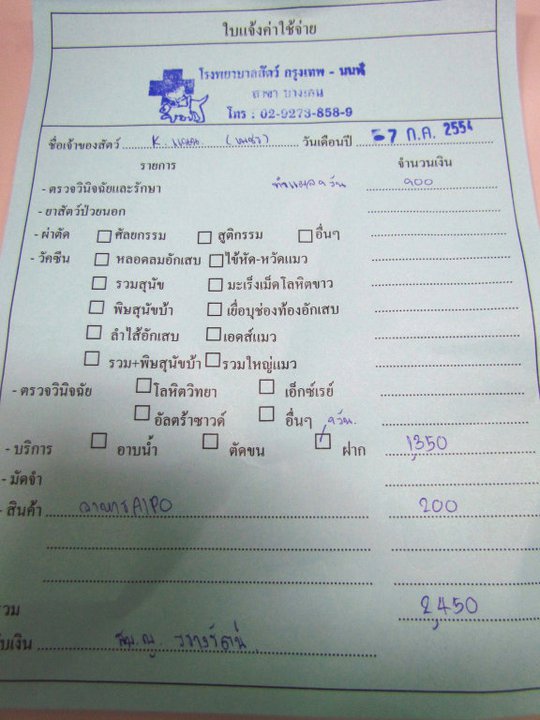 ใบแจ้งค่าใช้จ่าย
โรงพยาบาลสัตว์ กรุงเทพ - นนท์
สาขา บางเขน
โทร : 02-9273-858-9
ชื่อเจ้าของสัตว์ K. วันเดือนปี -7 ก.ค. 2554
รายการ จำนวนเงิน
- ตรวจวินิจฉัยและรักษา ทำแผล 9 วัน 900
- ยาสัตว์ป่วยนอก
- ผ่าตัด ศัลยกรรม สูติกรรม อื่นๆ
- วัคซีน หลอดลมอักเสบ ไข้หัด-หวัดแมว
รวมสุนัข มะเร็งเม็ดโลหิตขาว
พิษสุนัขบ้า เยื่อบุช่องท้องอักเสบ
ลำไส้อักเสบ เอดส์แมว
รวม+พิษสุนัขบ้า รวมใหญ่แมว
- ตรวจวินิจฉัย โลหิตวิทยา เอ็กซ์เรย์
อัลตร้าซาวด์ อื่นๆ 9 วัน.
- บริการ อาบน้ำ ตัดขน ฝาก 1,350
- มัดจำ
- สินค้า อาหาร AIPO 200
รวม 2,450
รับเงิน